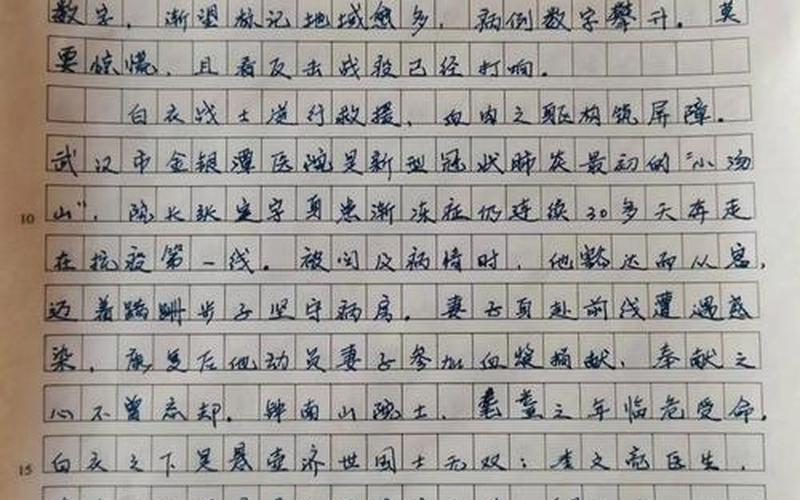 数字，渐望放记地域愈多，病例数字攀升。莫
要惊慌，且看反击战役已经打响。
白衣战士逆行救援，血肉之躯构筑屏障。
武汉市金银潭医院是新型冠状肺炎最初的“小汤
10 山”，院长张定宇身患渐冻症仍连续30多天奔走
在抗疫第一线。被问及病情时，他豁达而从容，
迈着蹒跚步子坚守病房。妻子身赴前线遭遇感
染，康复后他动员妻子参加血浆捐献，奉献之
心不曾忘却。钟南山院士，耄耋之年临危受命，
15 白衣之下是悬壶济世国士无双；李文亮医生，